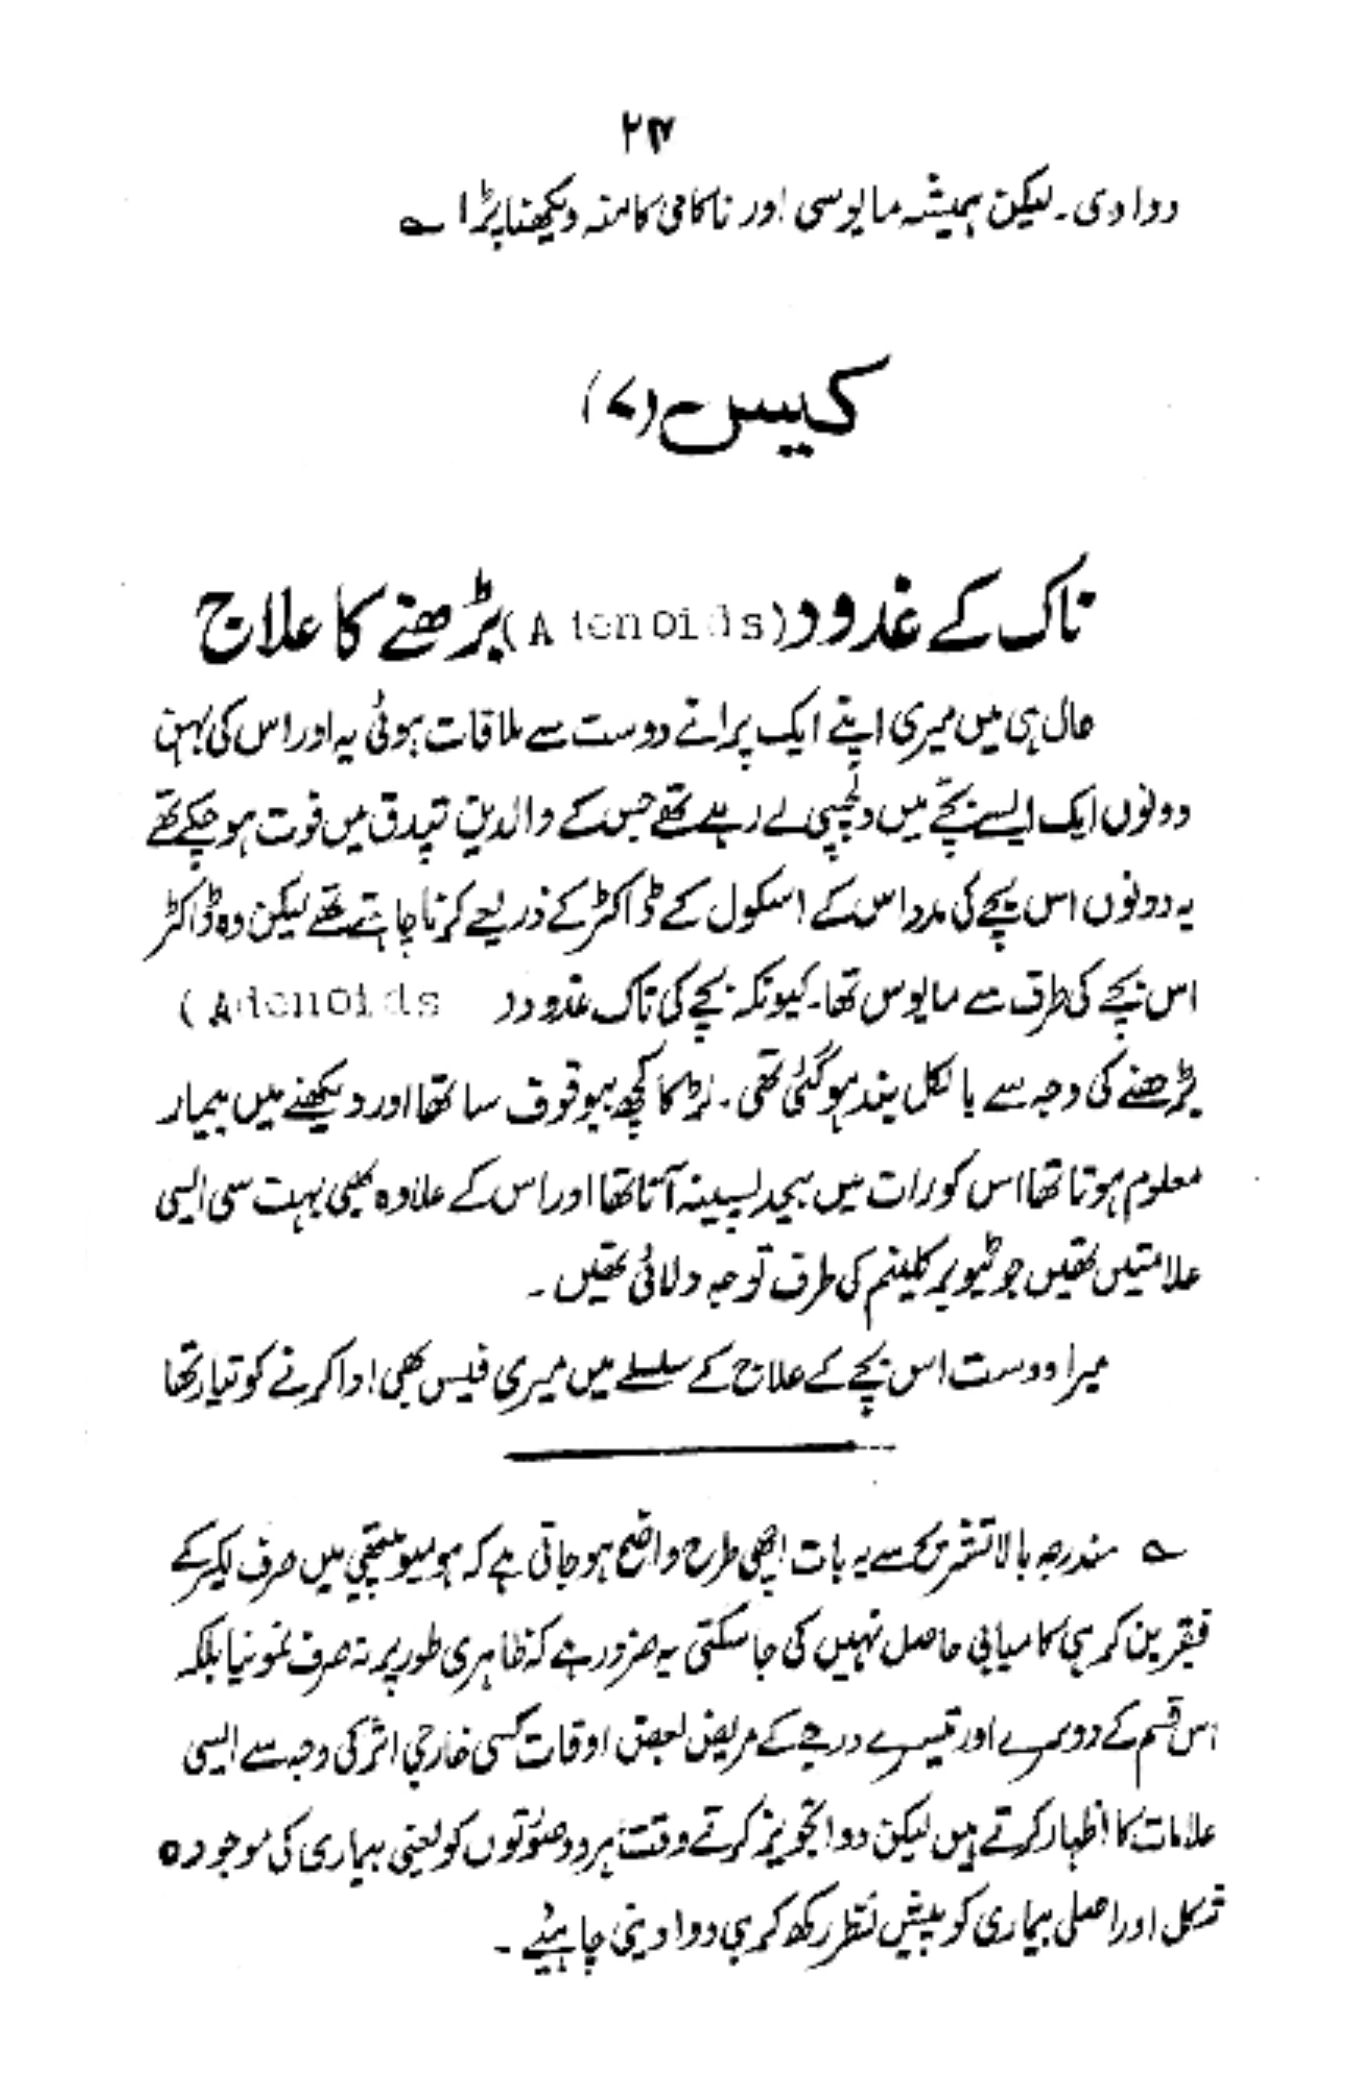 ۲۴
دوا دی۔ لیکن ہمیشہ مایوسی اور ناکامی کا منہ دیکھنا پڑا ؎
کیس (۷)
ناک کے غدود (Adenoids) بڑھنے کا علاج
حال ہی میں میری اپنے ایک پرانے دوست سے ملاقات ہوئی یہ اور اس کی بہن
دونوں ایک ایسے بچّے میں دلچسپی لے رہے تھے جس کے والدین تپدق میں فوت ہوچکے تھے
یہ دونوں اس بچے کی مدد اس کے اسکول کے ڈاکٹر کے ذریعے کرنا چاہتے تھے لیکن وہ ڈاکٹر
اس بچے کی طرف سے مایوس تھا۔ کیونکہ بچے کی ناک غدود (Adenoids
بڑھنے کی وجہ سے بالکل بند ہوگئی تھی۔ لڑکا کچھ بیوقوف سا تھا اور دیکھنے میں بیمار
معلوم ہوتا تھا اس کو رات میں بیحد پسینہ آتا تھا اور اس کے علاوہ بھی بہت سی ایسی
علامتیں تھیں جو ٹیوبرکلینم کی طرف توجہ دلاتی تھیں۔
میرا دوست اس بچے کے علاج کے سلسلے میں میری فیس بھی ادا کرنے کو تیار تھا
؎ مندرجہ بالا تشریح سے یہ بات اچھی طرح واضح ہوجاتی ہے کہ ہومیوپیتھی میں صرف لکیر کے
فقیر بن کر ہی کامیابی حاصل نہیں کی جاسکتی یہ ضرور ہے کہ ظاہری طور پر نہ صرف نمونیا بلکہ
اس قسم کے دوسرے اور تیسرے درجے کے مریض بعض اوقات کسی خارجی اثر کی وجہ سے ایسی
علامات کا اظہار کرتے ہیں لیکن دوا تجویز کرتے وقت ہر دو صورتوں کو یعنی بیماری کی موجودہ
شکل اور اصلی بیماری کو پیش نظر رکھ کر ہی دوا دینی چاہئیے۔